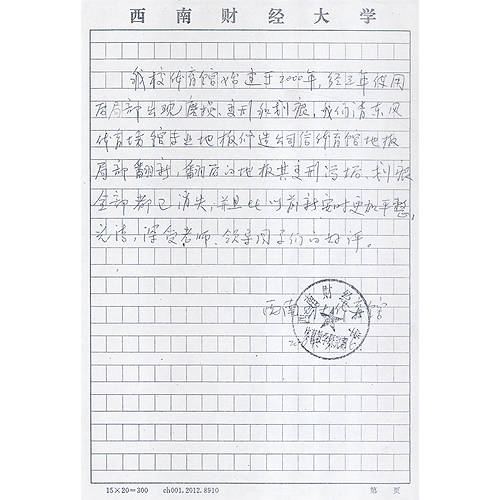 西南财经大学
我校体育馆始建于2000年，经过年使用
后局部出现磨损、变形和划痕，我们请东风
体育场馆专业地板制造公司给体育馆地板
局部翻新，翻后的地板其变形污垢、划痕
全部都已消失，并且比以前新安时更加平整，
光洁，深受老师、领导同学们的好评。
西南财大体育馆
15×20=300 ch001.2012.8910 第 页